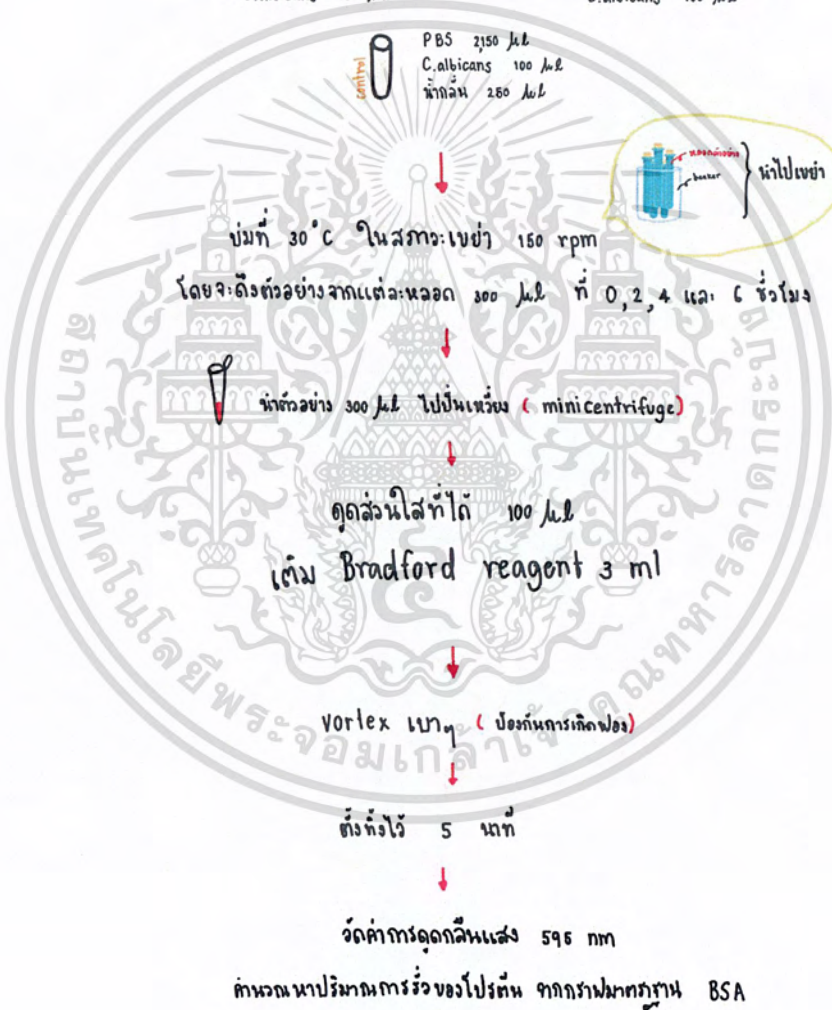 C.albicans 100 µl
control
PBS 2,150 µl
C.albicans 100 µl
น้ำกลั่น 250 µl
หลอดตัวอย่าง
beaker
นำไปเขย่า
บ่มที่ 30°C ในสภาวะเขย่า 150 rpm
โดยจะดึงตัวอย่างจากแต่ละหลอด 300 µl ที่ 0, 2, 4 และ 6 ชั่วโมง
นำตัวอย่าง 300 µl ไปปั่นเหวี่ยง ( minicentrifuge)
ดูดส่วนใสที่ได้ 100 µl
เติม Bradford reagent 3 ml
vortex เบาๆ ( ป้องกันการเกิดฟอง)
ตั้งทิ้งไว้ 5 นาที
วัดค่าการดูดกลืนแสง 595 nm
คำนวณหาปริมาณการรั่วของโปรตีน จากกราฟมาตรฐาน BSA
สถาบันเทคโนโลยีพระจอมเกล้าเจ้าคุณทหารลาดกระบัง